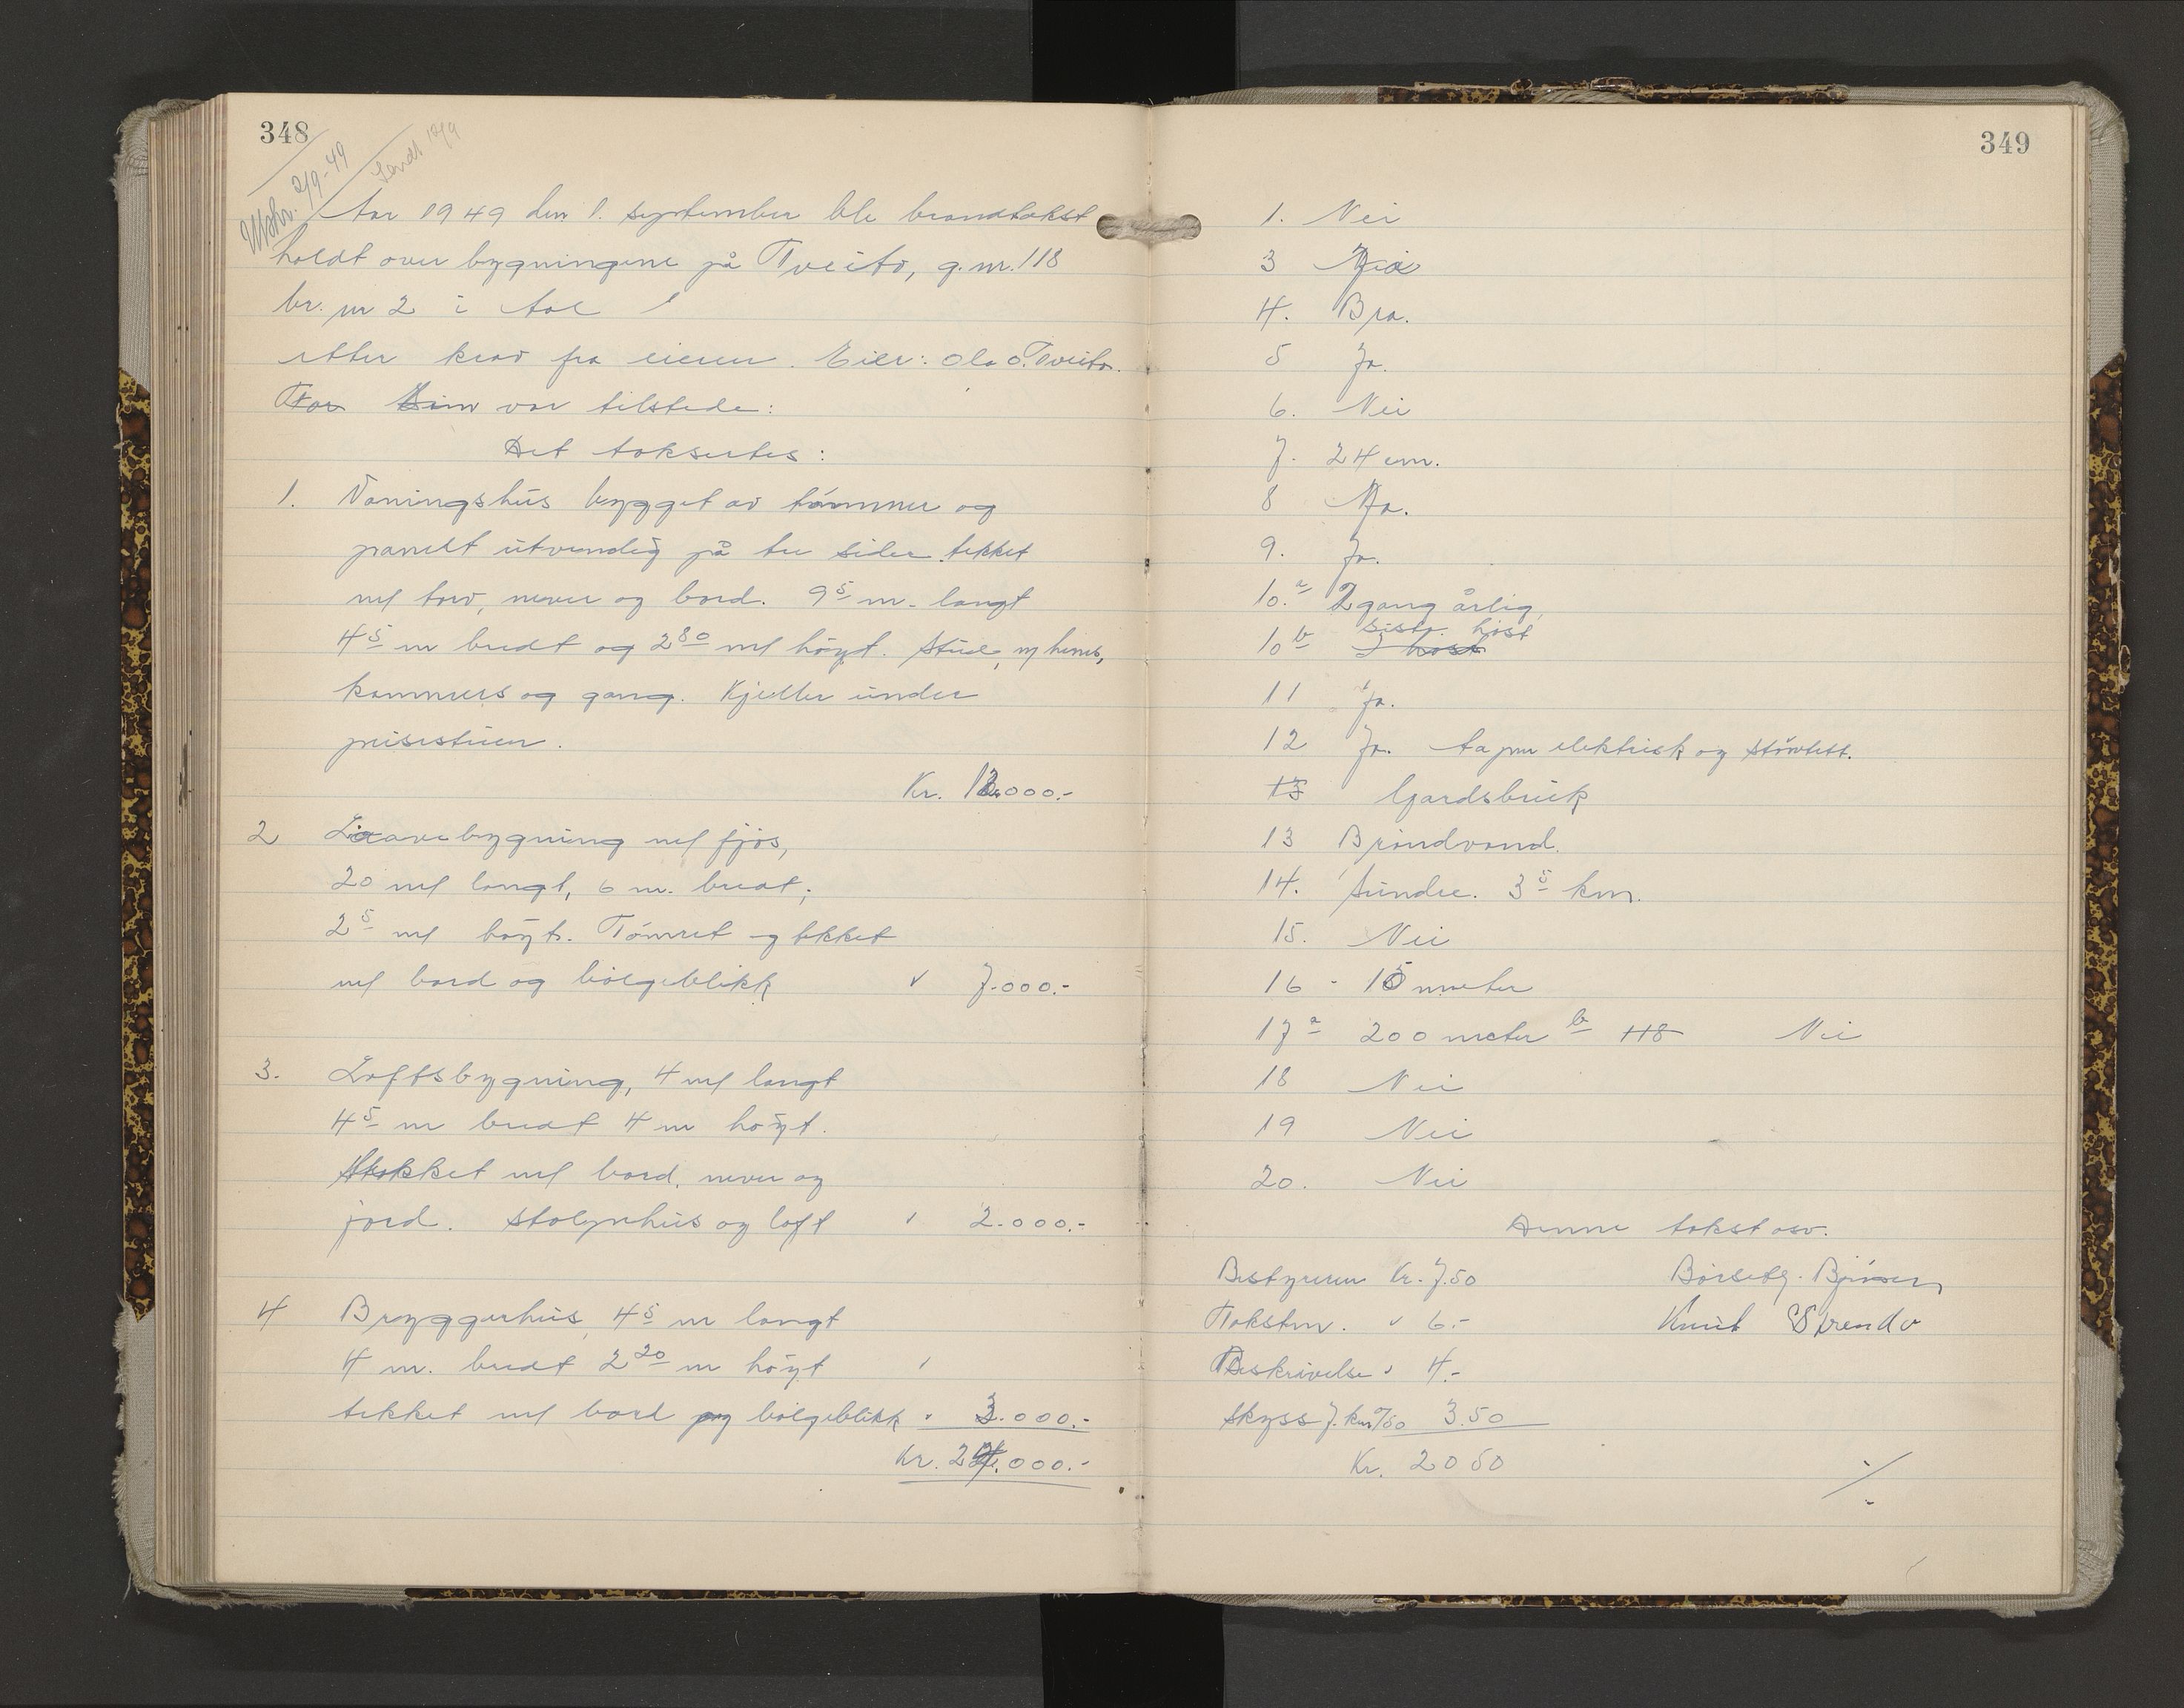 348
Utskr. 2/9-49
Sendt 12/9
Aar 1949 den 1. september ble brandtakst
holdt over bygningene på Tveito, g.nr. 118
br. nr 2 i Aal
etter krav fra eieren. Eier: Ola O. Tveito.
var tilstede:
Det taksertes:
1. Vaningshus bygget av tömmer og
panelt utvendig på tre sider. tekket
m/ torv, never og bord. 9⁵ m. langt
4⁵ m bredt og 2⁸⁰ m/ höyt. Stue, m/ hems,
kammers og gang. Kjeller under
peisestuen.
Kr. 12.000.-
2 Laavebygning m/ fjös,
20 m/ langt, 6 m. bredt;
2⁵ m/ höyt. Tömret og tekket
m/ bord og bölgeblikk " 7.000.-
3. Loftsbygning, 4 m/ langt
4⁵ m bredt 4 m höyt.
tekket m/ bord, never og
jord. Stolpehus og loft " 2.000.-
4 Bryggerhus, 4⁵ m langt
4 m. bredt 2²⁰ m höyt
tekket m/ bord og bölgeblikk " 3.000.-
Kr. 24.000.-
349
1. Nei
3 Ja
4. Bra.
5 Ja.
6. Nei
7. 24 cm.
8 Ja.
9. Ja.
10.a 2 gang årlig,
10 b sistr. höst
I höst
11 Ja.
12 Ja. Lamper elektrisk og stövtett.
13 Gardsbruk
13 Bröndvand.
14. Sundre. 3⁵ km.
15. Nei
16 - 15 meter
17 a 200 meter b 118 Nei
18 Nei
19 Nei
20. Nei
Denne takst osv.
Bestyreren Kr. 7.50
Takstm. " 6.-
Knut Strendo
Beskrivelse " 4.-
Skyss 7. km a/50 3.50
Kr. 20 50